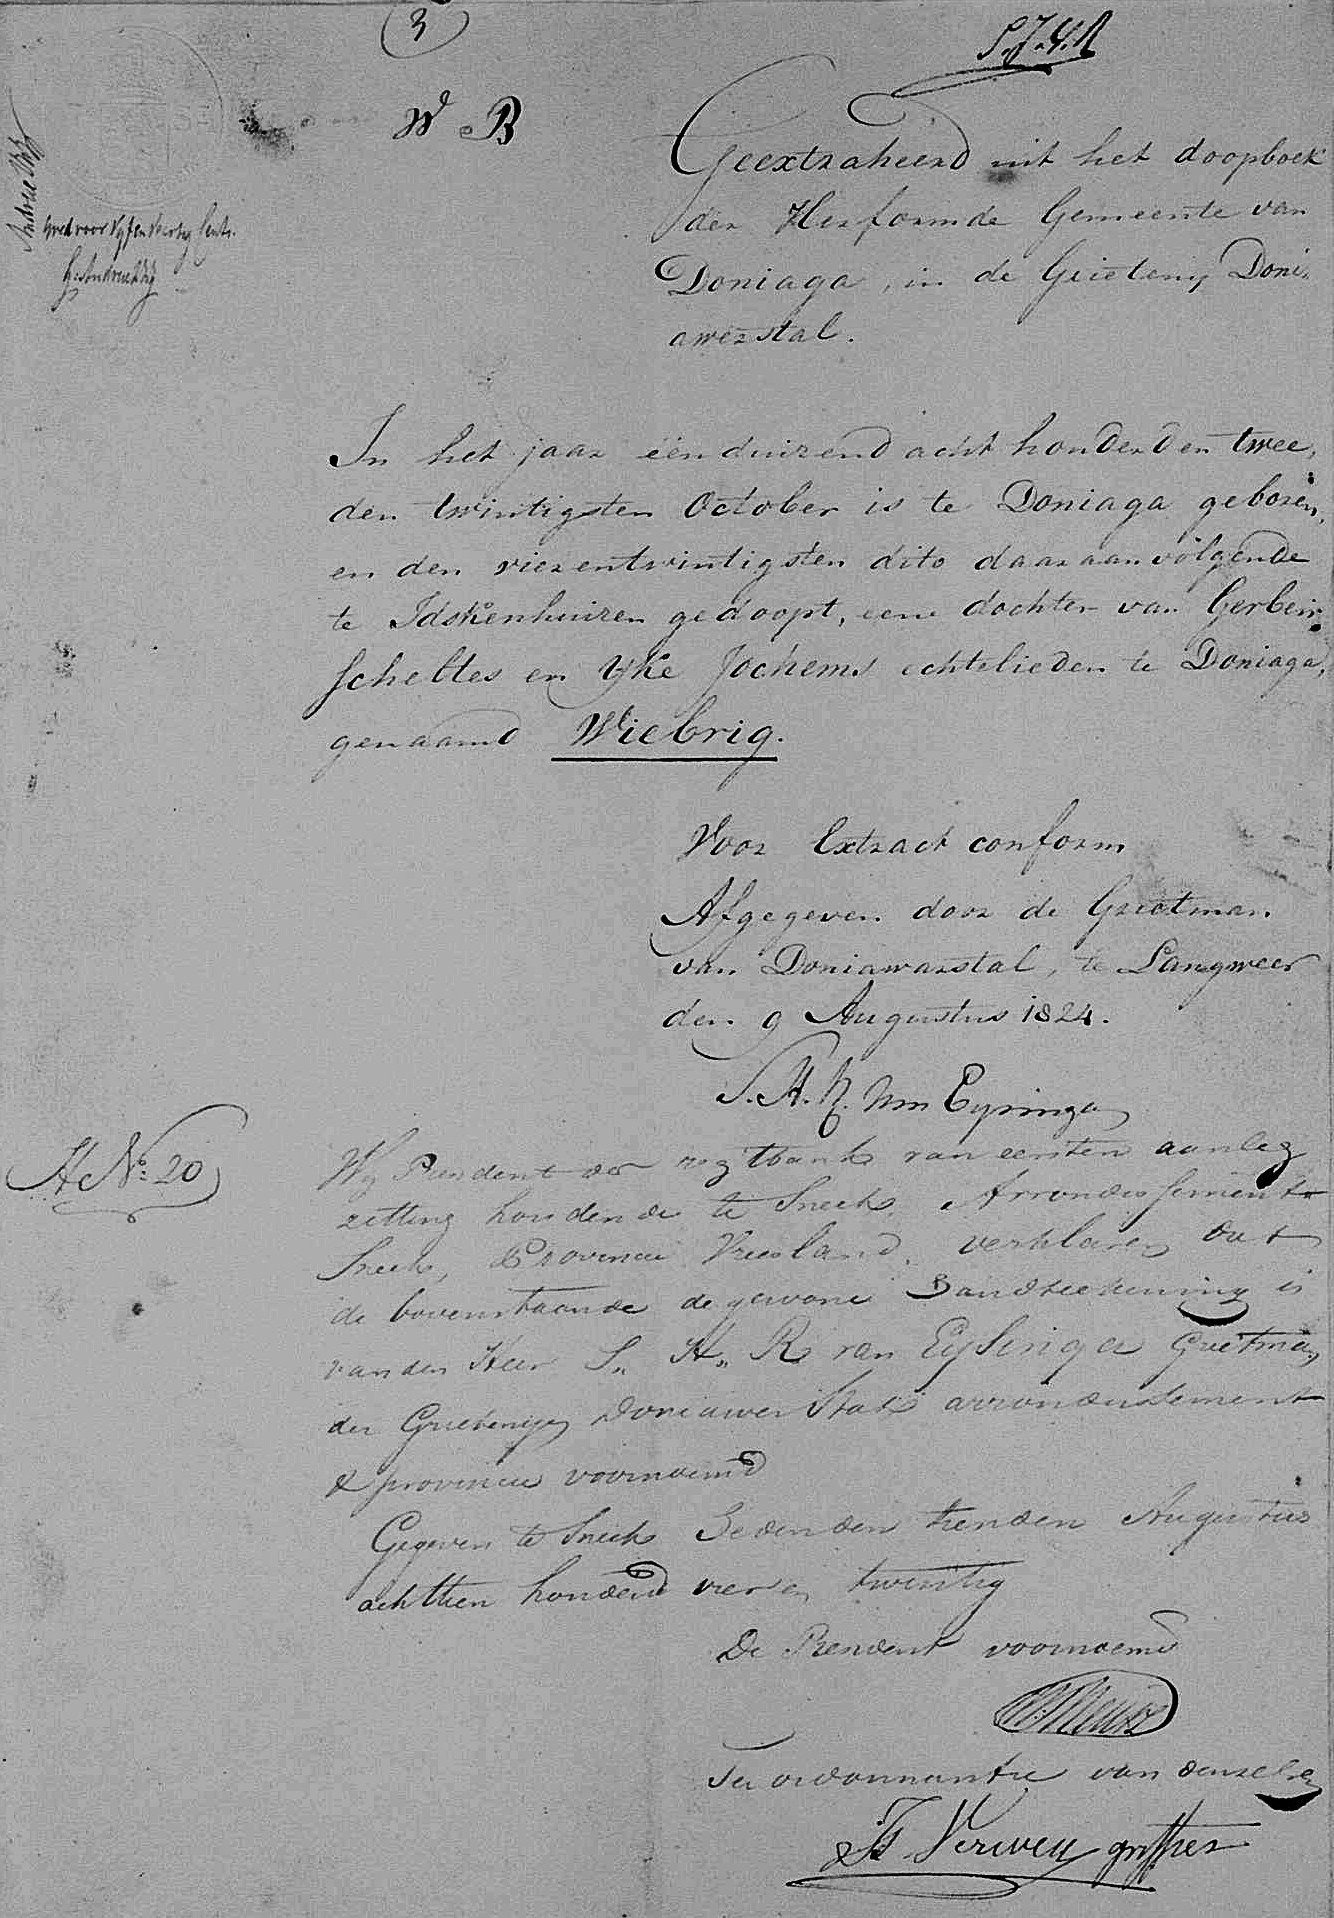 3
W B
Goed voor Vyf en Veertig Cents.
Geextraheerd uit het doopboek
der Herformde Gemeente van
Doniaga, in de Grieteny Doni-
awerstal.
In het jaar één duizend acht honderd en twee,
den twintigsten October is te Doniaga geboren,
en den vierentwintigsten dito daaraanvolgende
te Idskenhuizen gedoopt, eene dochter van Gerben
Scheltes en Yke Jochems echtelieden te Doniaga,
genaamd Wiebrig.
Voor Extract conform
Afgegeven door de Grietman
van Doniawarstal, te Langweer
den 9 Augustus 1824.
S. H. R. van Eysinga
H No. 20
Wy President der regtbank van eersten aanleg
zitting houdende te Sneek Arrondissement
Sneek, Provincie Vriesland, verklaren dat
de bovenstaande de gewone Handteekening is
van den Heer S. H. R. van Eysinga Grietman
der Grieteny Doniawerstal arrondissement
& provincie voornoemd
Gegeven te Sneek Heden den tienden Augustus
achttien honderd vier en twintig
De President voornoemd
Ter ordonnantie van denzelven
Verweij griffier